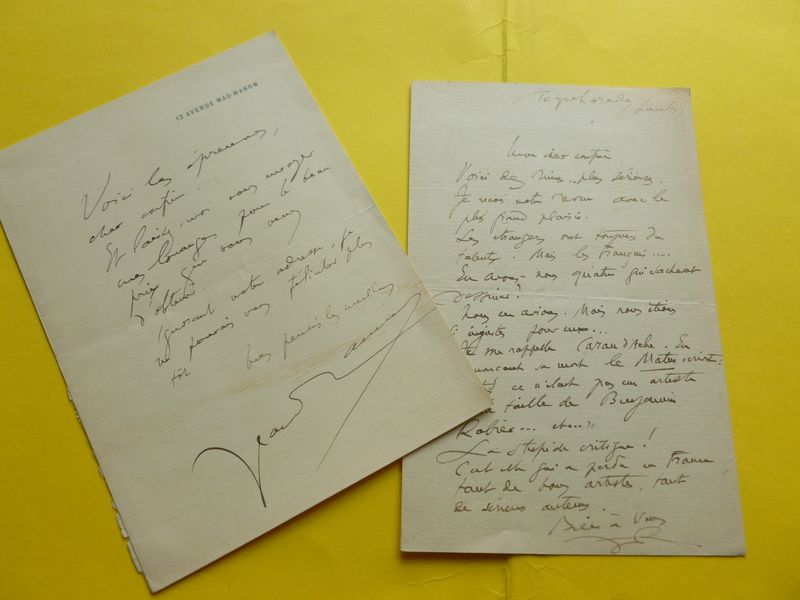 13 AVENUE MAC-MAHON
Voici les épreuves,
cher confrère.
Et laissez-moi vous envoyer
mes louanges pour le beau
prix que vous venez
d'obtenir.
Ignorant votre adresse, je
ne pouvais vous féliciter plus
tôt
Mes pensées les meilleures
Jean
Peyrehorade (Landes)
Mon cher confrère,
Voici des lignes plus sérieuses.
Je reçois votre revue avec le
plus grand plaisir.
Les étrangers ont toujours du
talent. Mais les Français....
En avons-nous quatre qui sachent
dessiner?
Nous en avions. Mais nous étions
injustes pour eux...
Je me rappelle Caran d'Ache. En
annonçant sa mort le Matin écrivit:
ce n'était pas un artiste
la taille de Benjamin
Rabier...
La stupide critique!
C'est elle qui a perdu en France
tant de bons artistes, tant
de sérieux auteurs.
Bien à vous